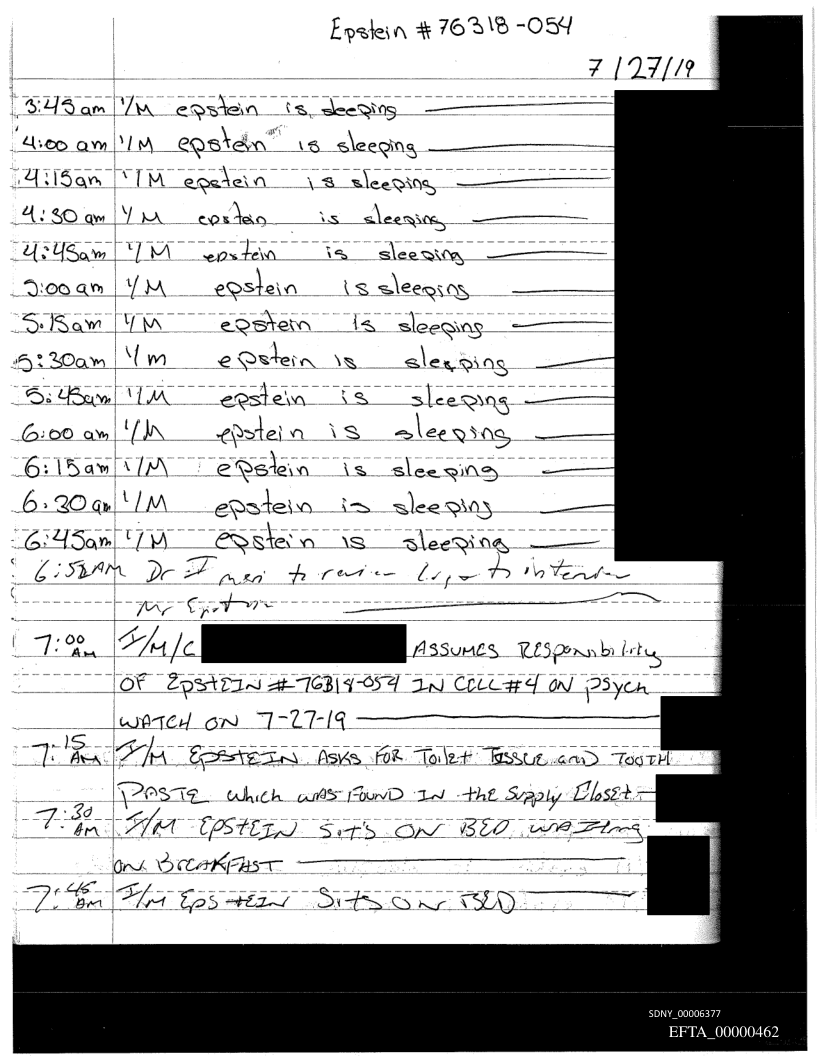 Epstein # 76318-054
7/27/19
3:45am I/M epstein is sleeping
4:00 am I/M epstein is sleeping
4:15am I/M epstein is sleeping
4:30 am I/M epstein is sleeping
4:45am I/M epstein is sleeping
5:00 am I/M epstein is sleeping
5:15am I/M epstein is sleeping
5:30am I/m epstein is sleeping
5:45am I/M epstein is sleeping
6:00 am I/M epstein is sleeping
6:15am I/M epstein is sleeping
6:30 am I/M epstein is sleeping
6:45am I/M epstein is sleeping
AM Dr to review to
Mr
7:00 AM I/M/C ASSUMES RESponsibility
OF EpSTEIN # 76318-054 IN CELL #4 ON psych
WATCH ON 7-27-19
7:15 AM I/M EpSTEIN ASKS FOR ToilEt TISSUE and TOOTH
PASTE which was FOUND IN the Supply Closet
7:30 AM I/M EPSTEIN Sit's ON BED WAITing
ON BREAKFAST
7:45 AM I/M EpStEIN Sits ON BED
SDNY_00006377
EFTA_00000462